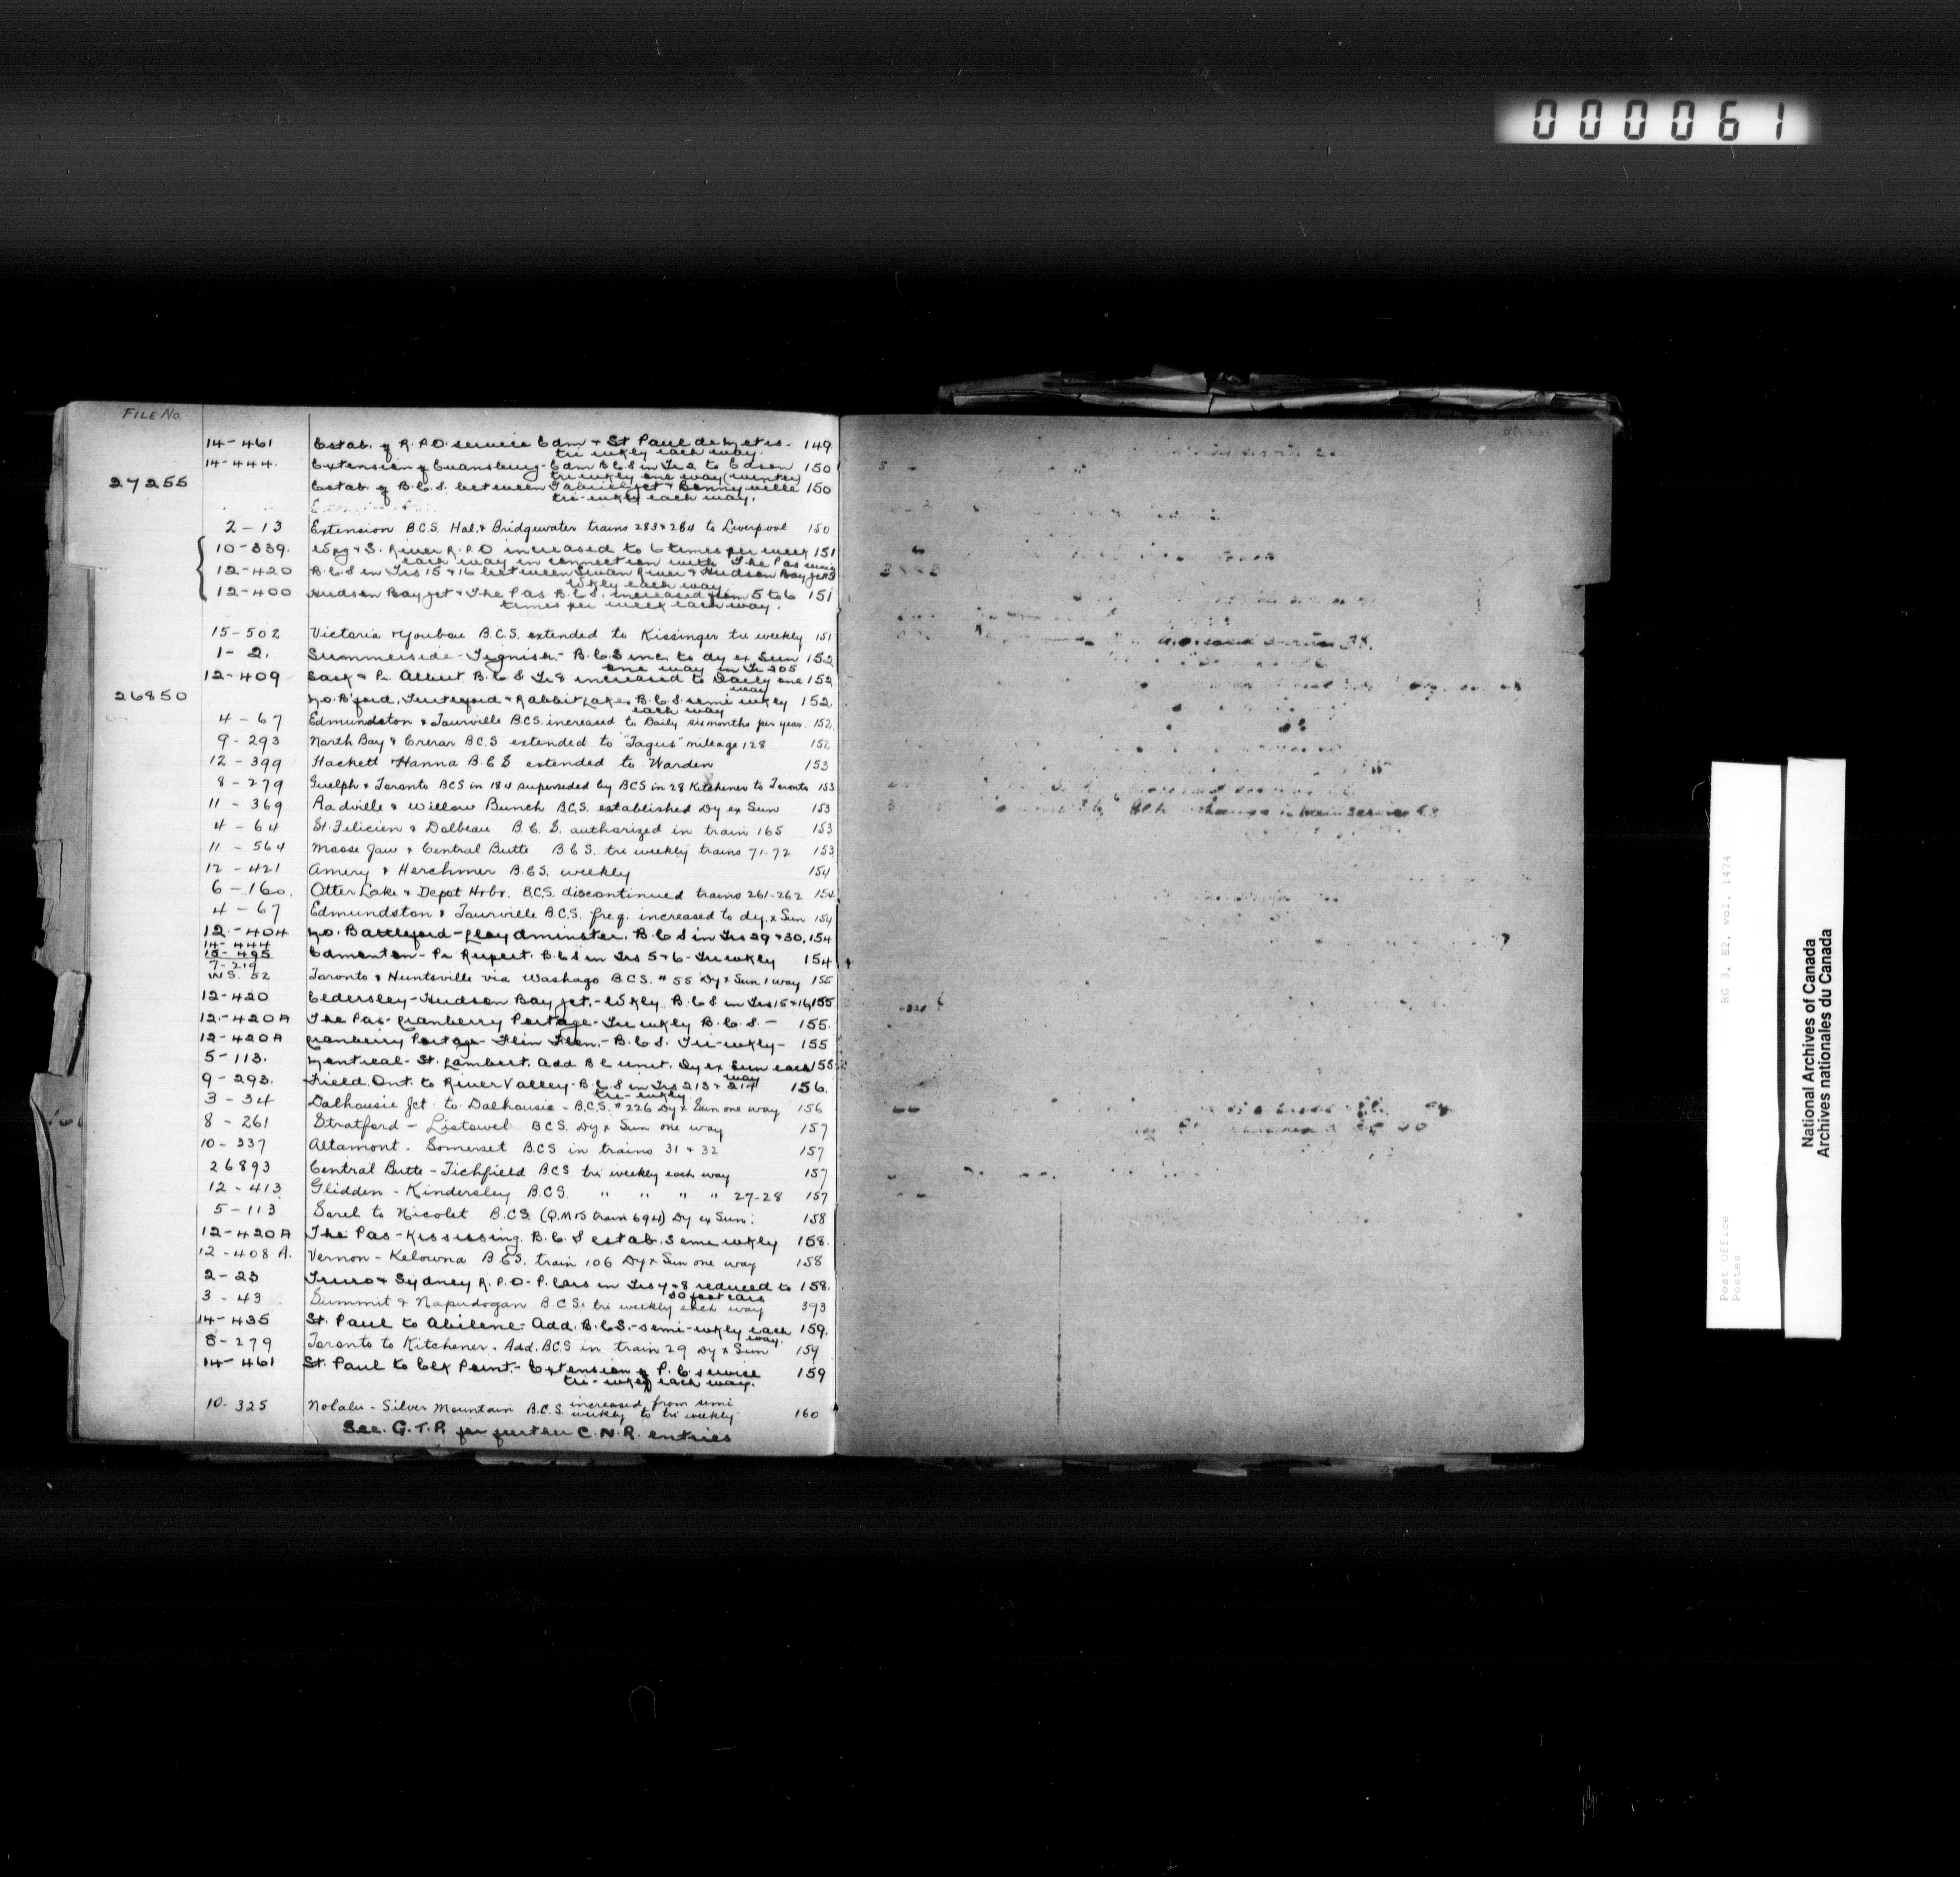 000061
FILE No.
14-461 Estab. of R.P.O. service Edm & St Paul de Metis - 149
tri wkly each way.
14-444. Extension of Evansburg-Edm B.C.S in Tr 2 to Edson 150
tri wkly one way (winter)
27255 Estab. of B.C.S. between Gabriel Jct & Bonnyville 150
tri-wkly each way.
2-13 Extension B.C.S. Hal. & Bridgewater trains 283 & 284 to Liverpool 150
10-339. Wpg & S. River R.P.O increased to 6 times per week 151
each way in connection with The Pas service
12-420 B.C.S in Trs 15 & 16 between Swan River & Hudson Bay Jct
Wkly each way
12-400 Hudson Bay Jct & The Pas B.C.S. increased from 5 to 6 151
times per week each way.
15-502 Victoria & Youbou B.C.S. extended to Kissinger tri weekly 151
1-2. Summerside-Tignish- B.C.S inc. to dy ex Sun 152
one way in Tr 205
12-409 Sask & Pr. Albert B.C.S Tr 8 increased to Daily one 152
way
26850 No. B'ford, Turtleford & Rabbit Lake B.C.S. semi wkly 152.
each way
4-67 Edmundston & Taurville B.C.S. increased to Daily six months per year. 152
9-293 North Bay & Crerar B.C.S extended to "Tagus" mileage 128 152
12-399 Hackett & Hanna B.C.S extended to Warden 153
8-279 Guelph & Toronto BCS in 184 superseded by BCS in 28 Kitchener to Toronto 153
11-369 Radville & Willow Bunch B.C.S. established Dy ex Sun 153
4-64 St. Felicien & Dolbeau B.C.S. authorized in train 165 153
11-564 Moose Jaw & Central Butte B.C.S. tri weekly trains 71-72 153
12-421 Amery & Herchmer B.C.S. weekly 154
6-160. Otter Lake & Depot Hrbr. B.C.S. discontinued trains 261-262 154
4-67 Edmundston & Taurville B.C.S. freq. increased to dy. x Sun 154
12-404 No. Battleford-Lloydminster. B.C.S in Trs 29 & 30, 154
14-444
15-495 Edmonton-Pr Rupert. B.C.S in Trs 5 & 6-Tri wkly 154
7-219
W.S. 52 Toronto & Huntsville via Washago B.C.S. # 55 Dy x Sun 1 way 155
12-420 Eldersley-Hudson Bay Jct.-Wkly B.C.S in Trs 15 & 16, 155
12-420A The Pas-Cranberry Portage-Tri wkly B.C.S.- 155.
12-420A Cranberry Portage-Flin Flon.-B.C.S. Tri-wkly- 155
5-113. Montreal-St. Lambert. Add B.C unit. Dy ex Sun each 155
way
9-293. Field Ont. to River Valley-B.C.S in Trs 213 & 214 156.
tri-wkly
3-34 Dalhousie Jct to Dalhousie - B.C.S. # 226 Dy x Sun one way 156
8-261 Stratford - Listowel B.C.S. Dy x Sun one way 157
10-337 Altamont. Somerset B.C.S in trains 31 & 32 157
26893 Central Butte - Tichfield B.C.S tri weekly each way 157
12-413 Glidden - Kindersley B.C.S. " " " " 27-28 157
5-113 Sorel to Nicolet B.C.S. (Q.M&S train 694) Dy ex Sun. 158
12-420A The Pas-Kississing. B.C.S estab. Semi wkly 158.
12-408 A. Vernon - Kelowna B.C.S. train 106 Dy x Sun one way 158
2-23 Truro & Sydney R.P.O-P. Cars in Trs 7 & 8 reduced to 158.
30 foot cars
3-43 Summit & Napadogan B.C.S. tri weekly each way 393
14-435 St. Paul to Abilene- Add. B.C.S.-semi-wkly each 159.
way.
8-279 Toronto to Kitchener. Add. BCS in train 29 Dy x Sun 159
14-461 St. Paul to Elk Point.- Extension of P.C. service 159
tri-wkly each way.
10-325 Nolalu - Silver Mountain B.C.S. increased from semi
weekly to tri weekly 160
See G.T.P. for further C.N.R. entries
RG 3, E2, vol. 1474
Post Office
Postes
National Archives of Canada
Archives nationales du Canada